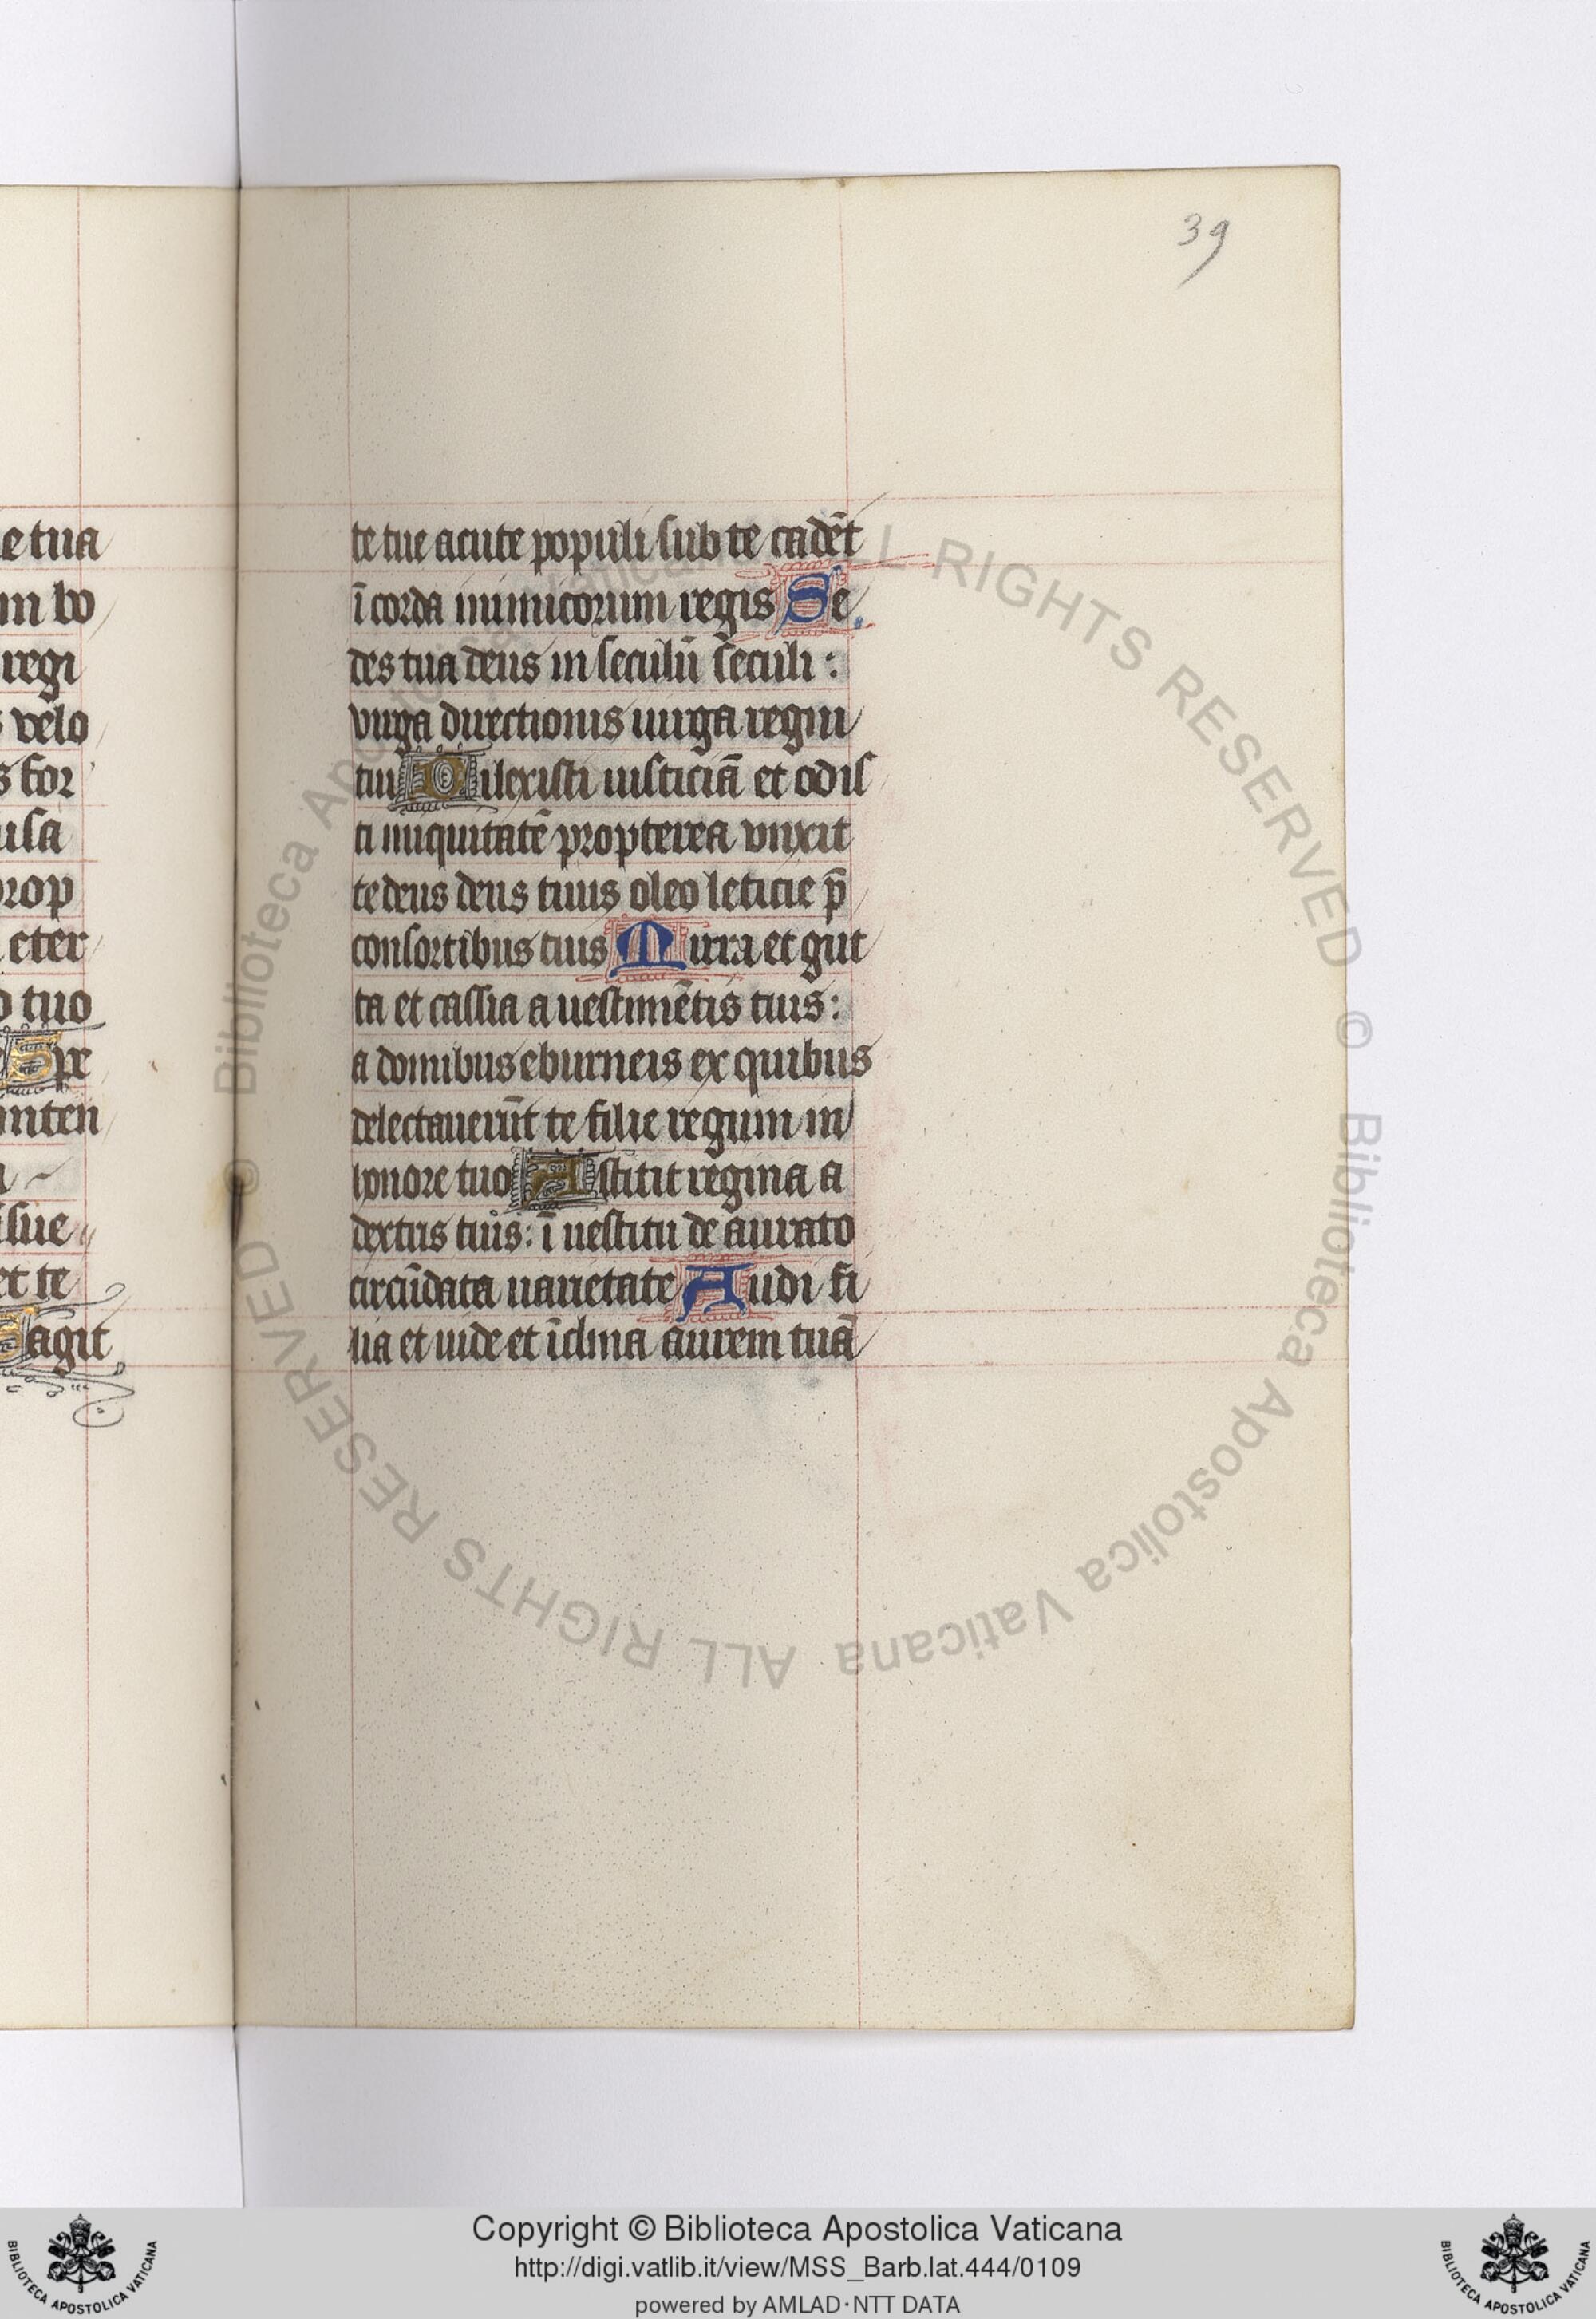 39
e tua
m bo
regi
velo
s for
usa
prop
eter
o tuo
Spe
inten
sue
et te
Sagit
te tue acute populi sub te cadēt
ī corda inimicorum regis Se
des tua deus in seculū seculi :
virga directionis uirga regni
tui Dilexisti iusticiā et odis
ti iniquitatē propterea vnxit
te deus deus tuus oleo leticie p̄
consortibus tuis Mirra et gut
ta et cassia a uestimētis tuis :
a domibus eburneis ex quibus
delectauerūt te filie regum in
honore tuo Astitit regina a
dextris tuis : ī uestitu de aurato
circūdata uarietate Audi fi
lia et uide et īclina aurem tuā
© Biblioteca Apostolica Vaticana ALL RIGHTS RESERVED © Biblioteca Apostolica Vaticana ALL RIGHTS RESERVED
Copyright © Biblioteca Apostolica Vaticana
http://digi.vatlib.it/view/MSS_Barb.lat.444/0109
powered by AMLAD·NTT DATA
BIBLIOTECA APOSTOLICA VATICANA
BIBLIOTECA APOSTOLICA VATICANA